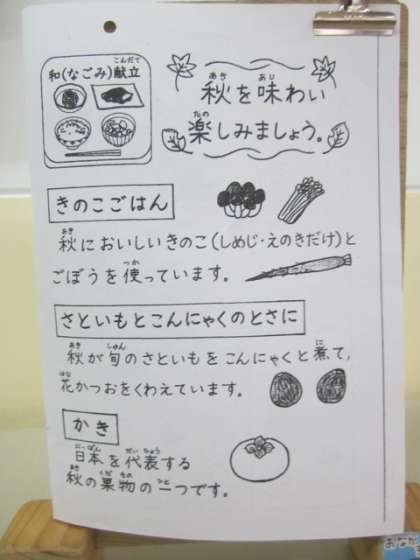 和(なごみ)献立
秋を味わい
楽しみましょう。
きのこごはん
秋においしいきのこ(しめじ・えのきだけ)と
ごぼうを使っています。
さといもとこんにゃくのとさに
秋が旬のさといもをこんにゃくと煮て,
花かつおをくわえています。
かき
日本を代表する
秋の果物の一つです。